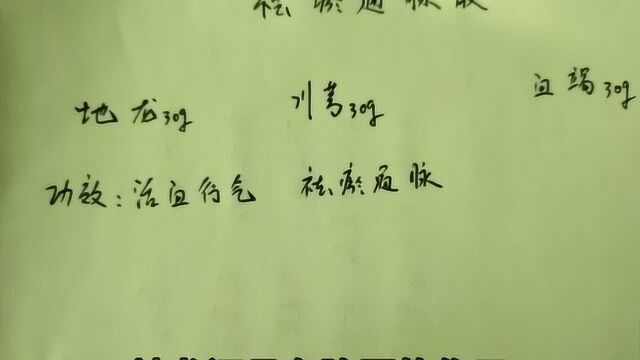 祛瘀通脉散
地龙30g 川芎30g 血竭30g
功效：活血行气 祛瘀通脉